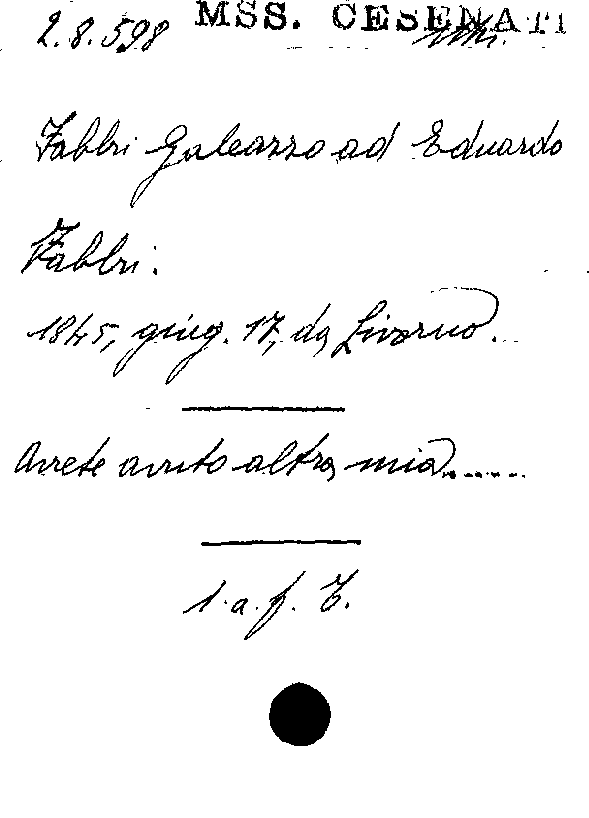 2.8.598 MSS. CESENATI
Fabbri Galeazzo ad Eduardo
Fabbri.
1845, giug. 17, da Livorno.
Avrete avuto altra mia......
l. a. f.